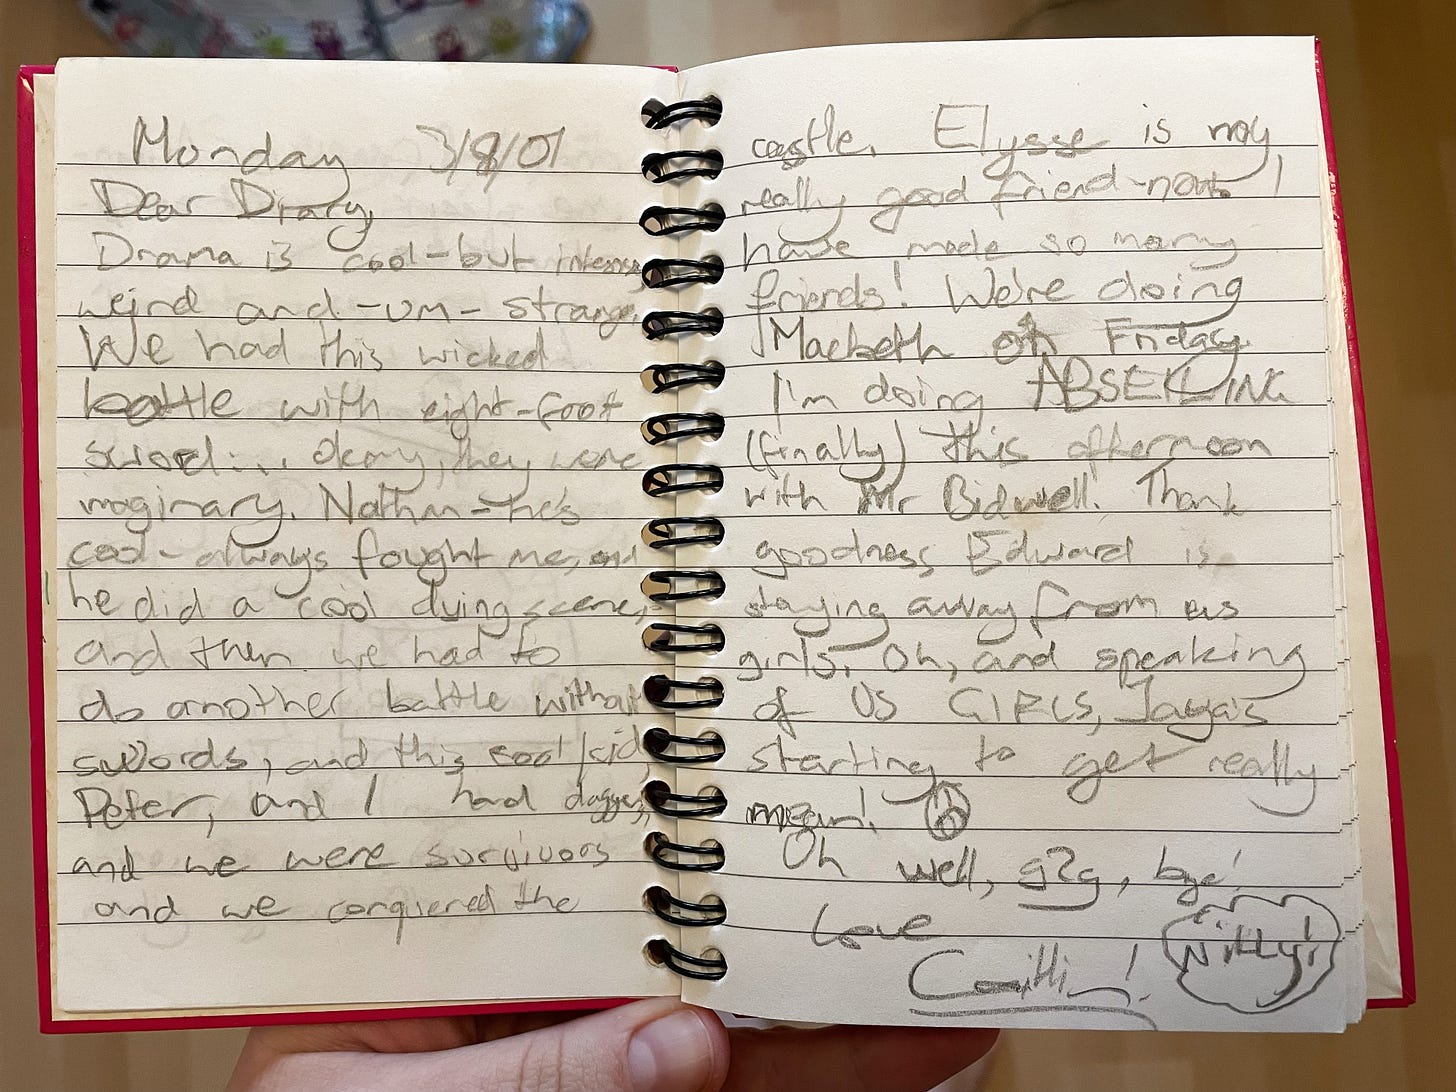 Monday 3/9/01
Dear Diary,
Drama is cool-but intense
weird and-um-strange.
We had this wicked
battle with eight-foot
sword... okay, they were
imaginary. Nathan-he's
cool-always fought me, and
he did a cool dying scene,
and then we had to
do another battle without
swords, and this cool kid,
Peter, and I had daggers,
and we were survivors
and we conquered the
castle. Elysse is my
really good friend-now I
have made so many
friends! We're doing
Macbeth on Friday.
I'm doing ABSEILING
(finally) this afternoon
with Mr Bidwell! Thank
goodness Edward is
staying away from us
girls. Oh, and speaking
of US GIRLS, Jaya's
starting to get really
mean!
Oh well, g2g, bye!
Love
Caitlin!